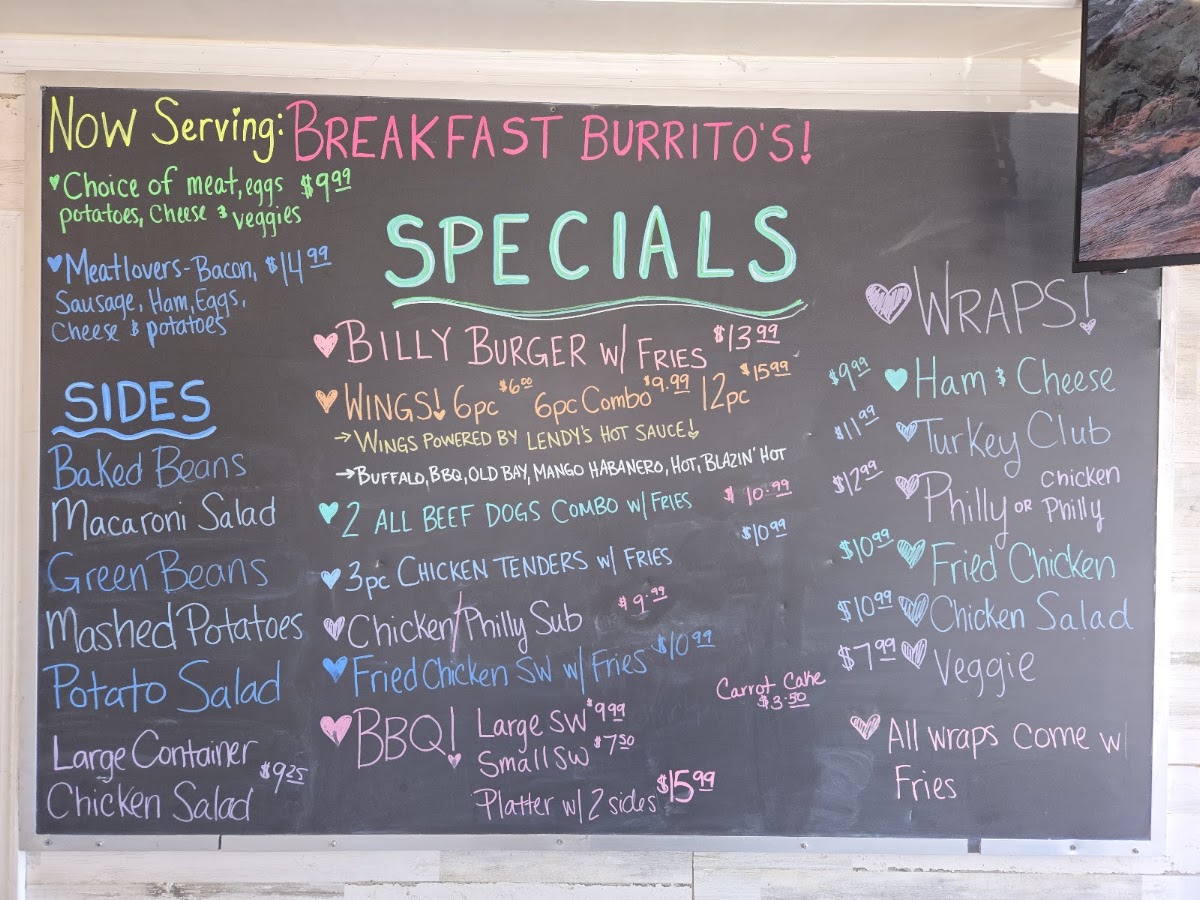 Now Serving: BREAKFAST BURRITO'S!
Choice of meat, eggs $9.99
potatoes, Cheese & veggies
Meatlovers-Bacon, $14.99
Sausage, Ham, Eggs,
Cheese & potatoes
SIDES
Baked Beans
Macaroni Salad
Green Beans
Mashed Potatoes
Potato Salad
Large Container
Chicken Salad $9.25
SPECIALS
BILLY BURGER w/ FRIES $13.99
WINGS! 6pc $6.00 6pc Combo $9.99 12pc $15.99
→WINGS POWERED BY LENDY'S HOT SAUCE!
→BUFFALO, BBQ, OLD BAY, MANGO HABANERO, HOT, BLAZIN' HOT
2 ALL BEEF DOGS COMBO w/ FRIES $10.99
3pc CHICKEN TENDERS w/ FRIES $10.99
Chicken/Philly Sub $9.99
Fried Chicken SW w/ Fries $10.99
BBQ! Large SW $9.99
Small SW $7.50
Platter w/ 2 sides $15.99
Carrot Cake
$3.50
WRAPS!
$9.99 Ham & Cheese
$11.99 Turkey Club
$12.99 Philly OR Chicken Philly
$10.99 Fried Chicken
$10.99 Chicken Salad
$7.99 Veggie
All wraps come w/
Fries